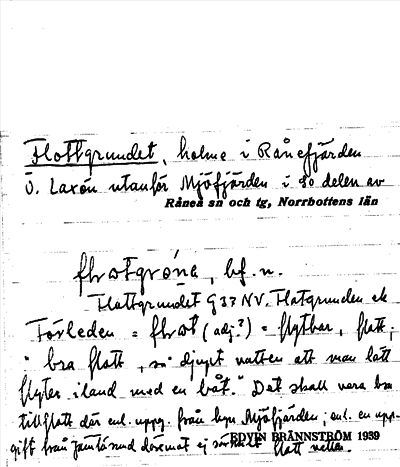 Flottgrundet, holme i Rånefjärden
Ö. Laxön utanför Mjöfjärden i sö delen av
Råneå sn och tg, Norrbottens län
bf. n.
Flottgrundet G33 NV. Flatgrunden ek
Förleden = flɷt (adj.?) = flytbar, flott;
"bra flott, så djupt vatten att man lätt
flyter iland med en båt." Det skall vara bra
tillflott där enl. uppg. från byn Mjöfjärden; enl. en upp-
gift från Jämtösund däremot ej särskilt flott vatten.
EDVIN BRÄNNSTRÖM 1939